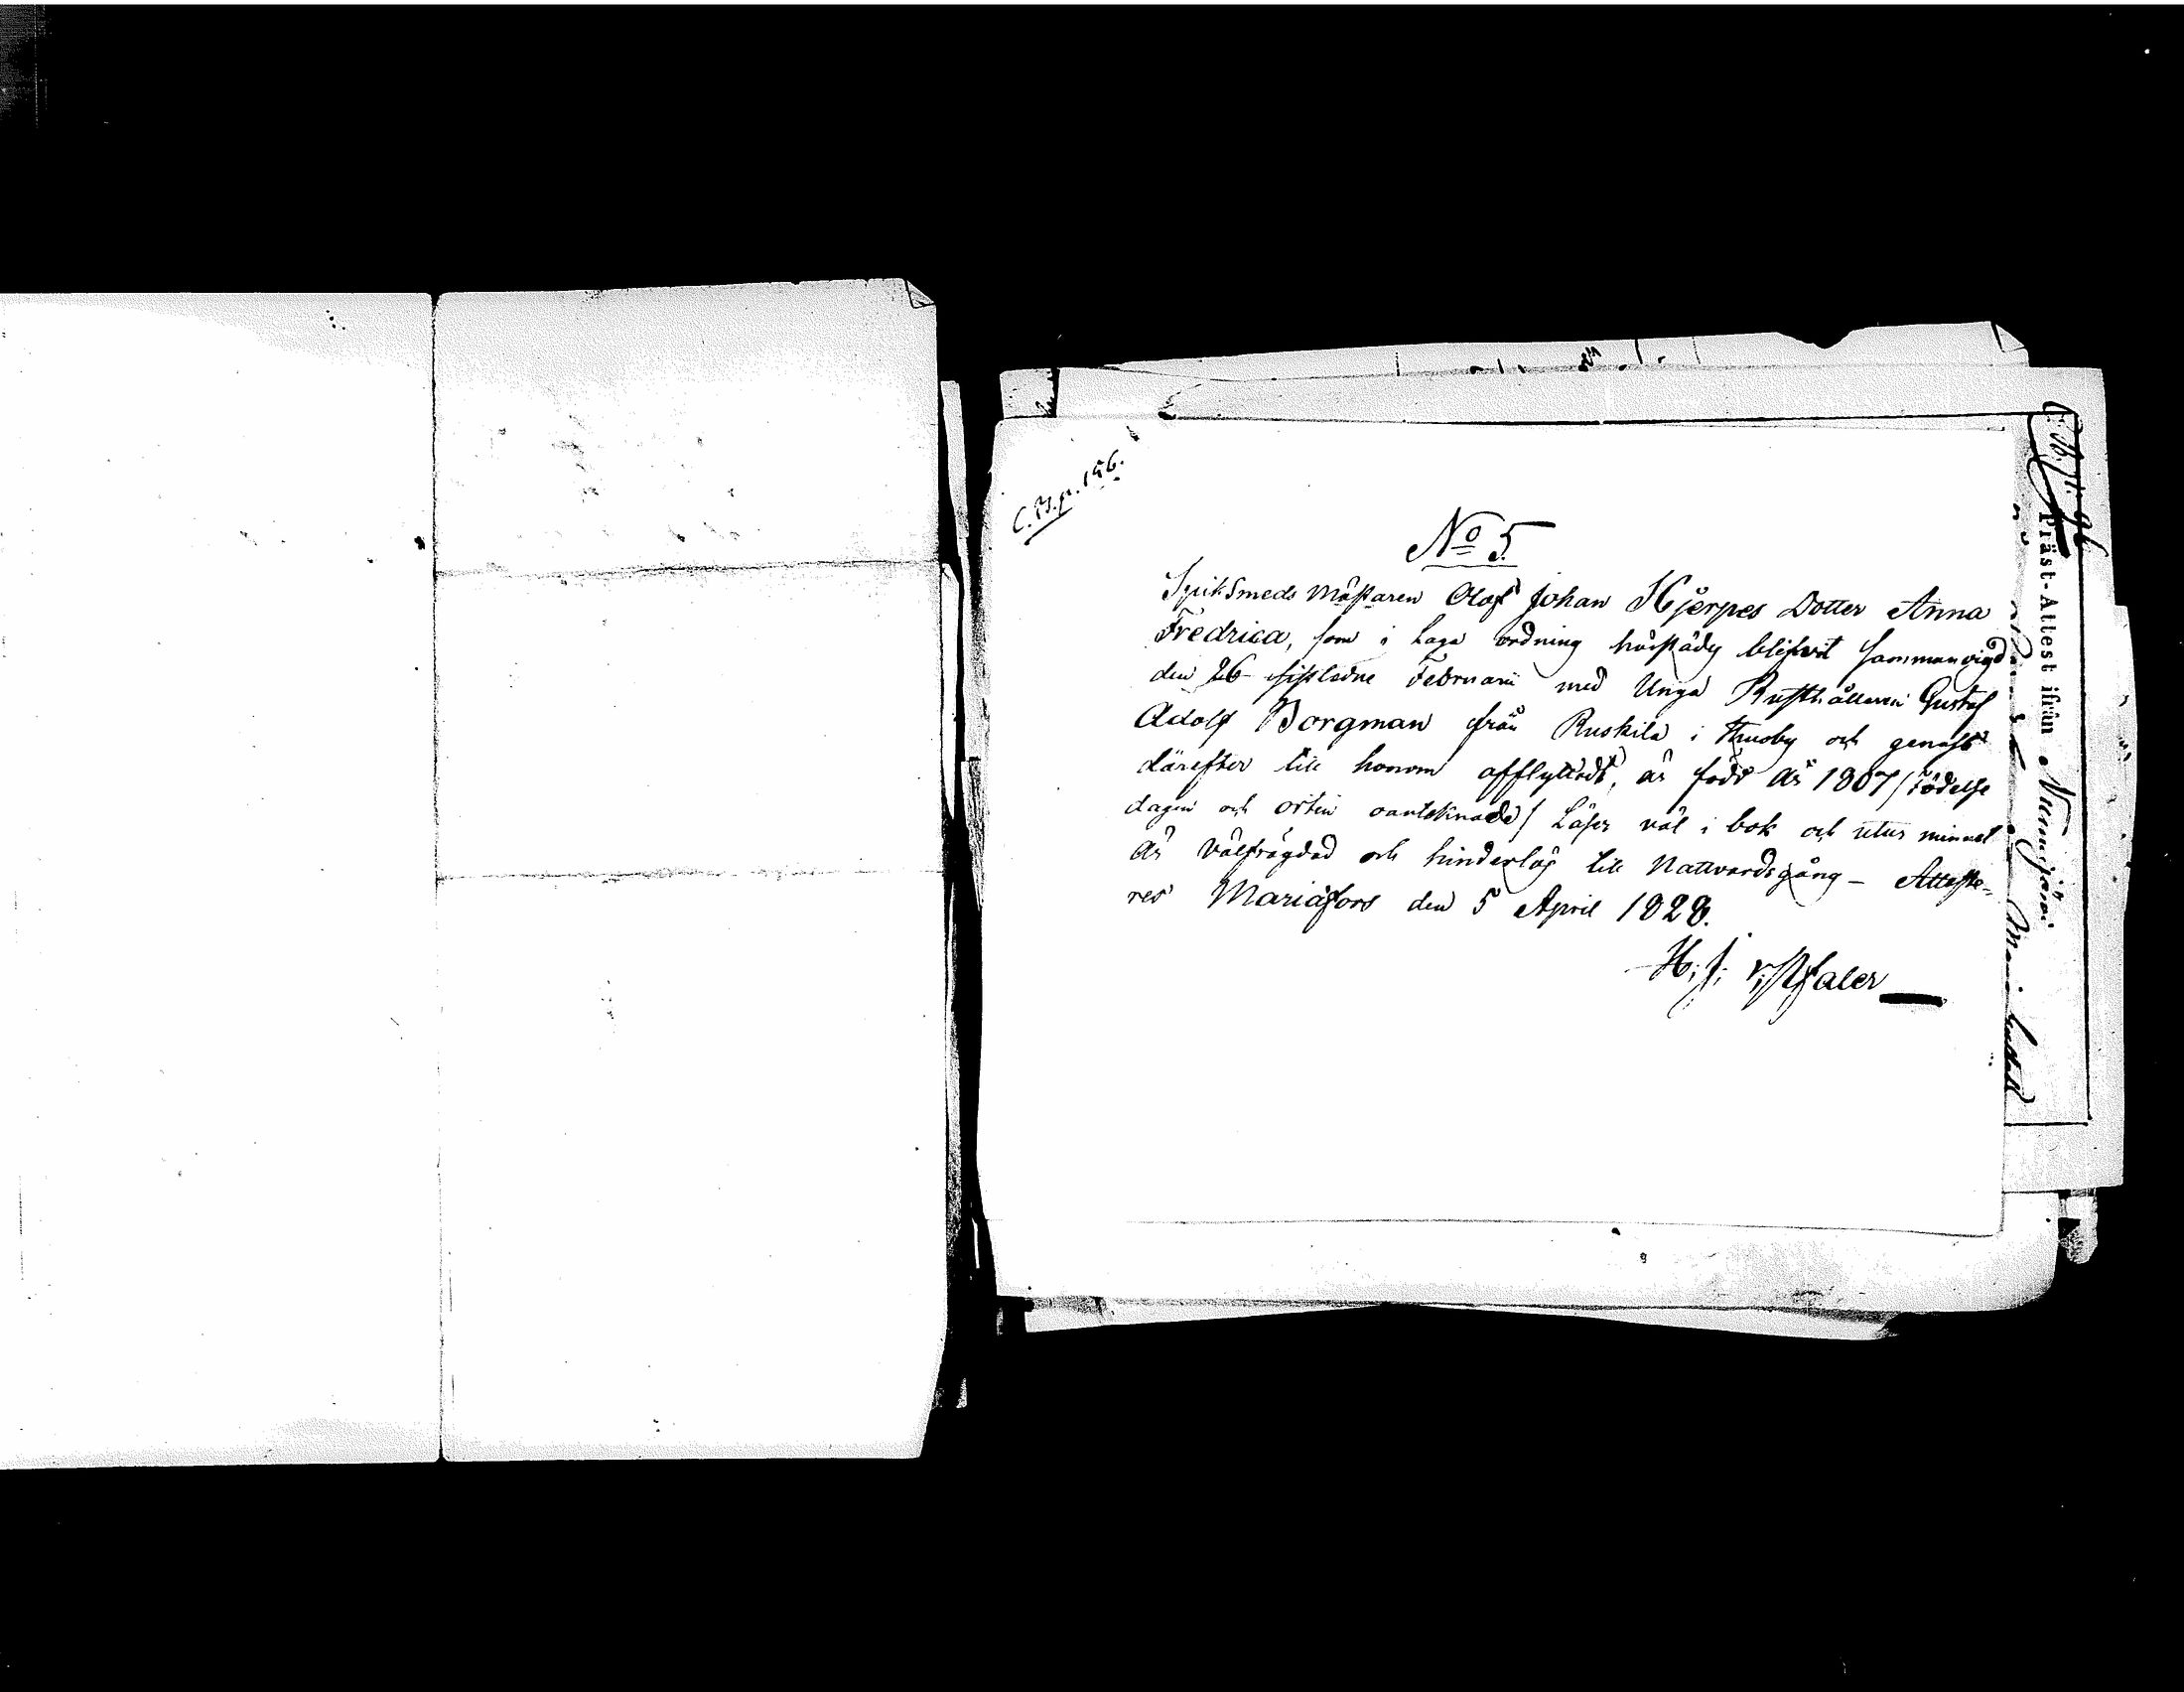 C.B.p. 156.
No 5
Spiksmeds Mästaren Olof Johan Hjerpes Dotter Anna
Fredrica, som i Laga ordning härstädes blifvit sammanvigd
den 26 sistledne Februarii med Unga Rusthållaren Gustaf
Adolf Borgman från Ruskila i Thusby och genast
därefter till honom afflyttadt, är född år 1807 / födelse
dagen och orten oantecknade / Läser väl i bok och utur minnet
är välfrägdad och hinderlös till Nattvardsgång – Atteste=
res Mariæfors den 5 April 1828.
H. J. v. Pfaler
Präst-Attest ifrån Nurmijärvi